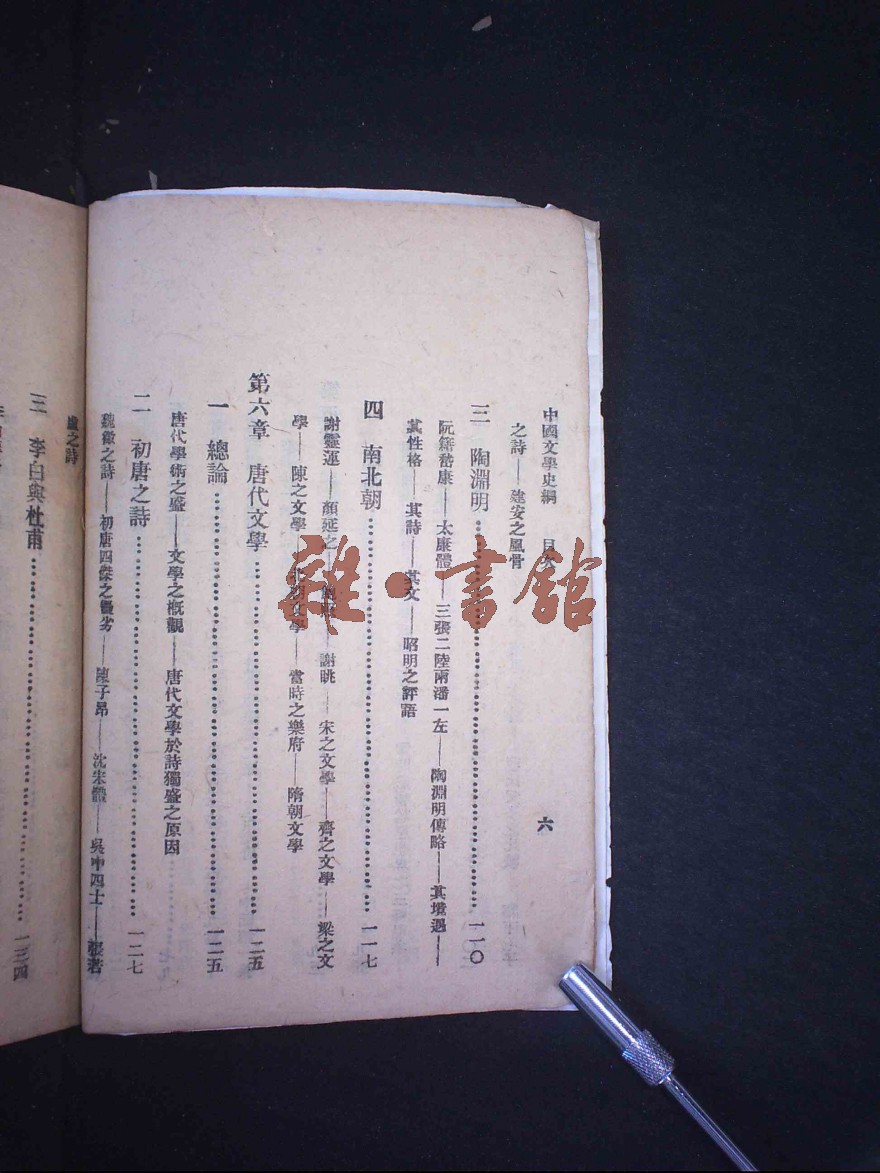 中國文學史綱 目次 六
之詩——建安之風骨
三 陶淵明……一一〇
阮籍嵇康——太康體——三張二陸兩潘一左——陶淵明傳略——其境遇——
其性格——其詩——其文——昭明之評語
四 南北朝……一一七
謝靈運——顏延之——謝眺——宋之文學——齊之文學——梁之文
學——陳之文學——北朝文學——當時之樂府——隋朝文學
第六章 唐代文學……一二五
一 總論……一二五
唐代學術之盛——文學之概觀——唐代文學於詩獨盛之原因
二 初唐之詩……一二七
魏徵之詩——初唐四傑之優劣——陳子昂——沈宋體——吳中四士——張若
虛之詩
三 李白與杜甫……一三四
雜·書館